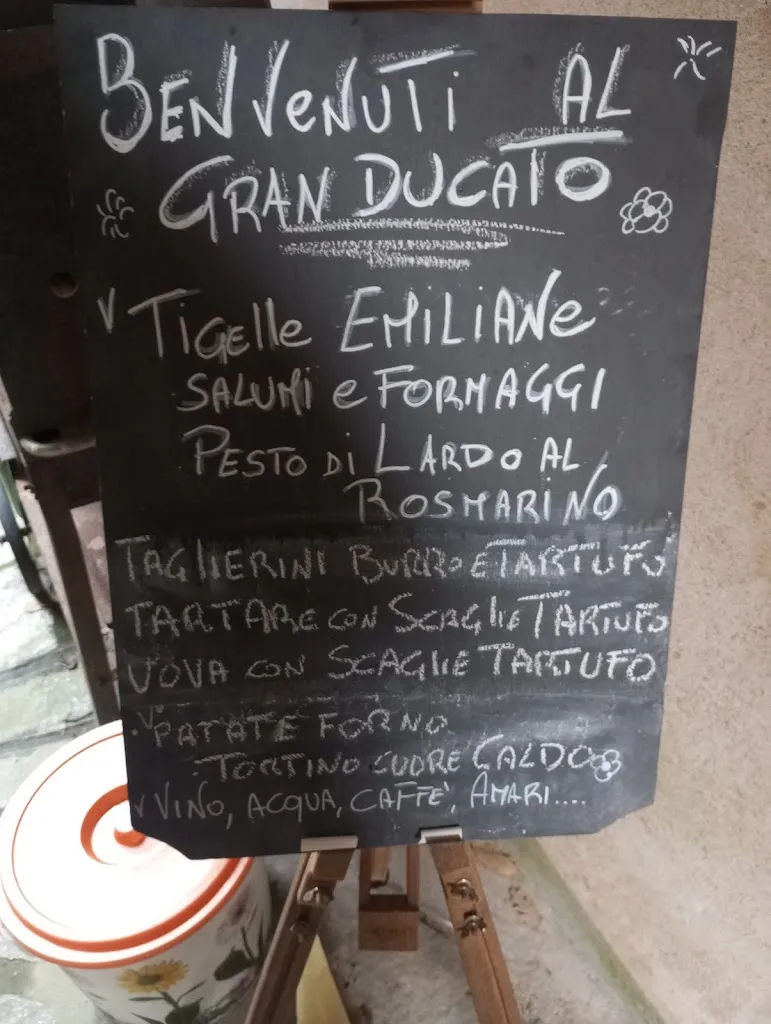 BENVENUTI AL
GRAN DUCATO
V TIGELLE EMILIANE
SALUMI e FORMAGGI
PESTO DI LARDO AL
ROSMARINO
TAGLIERINI BURRO E TARTUFO
TARTARE CON SCAGLIE TARTUFO
UOVA CON SCAGLIE TARTUFO
V PATATE FORNO
TORTINO CUORE CALDO
V VINO, ACQUA, CAFFE', AMARI....